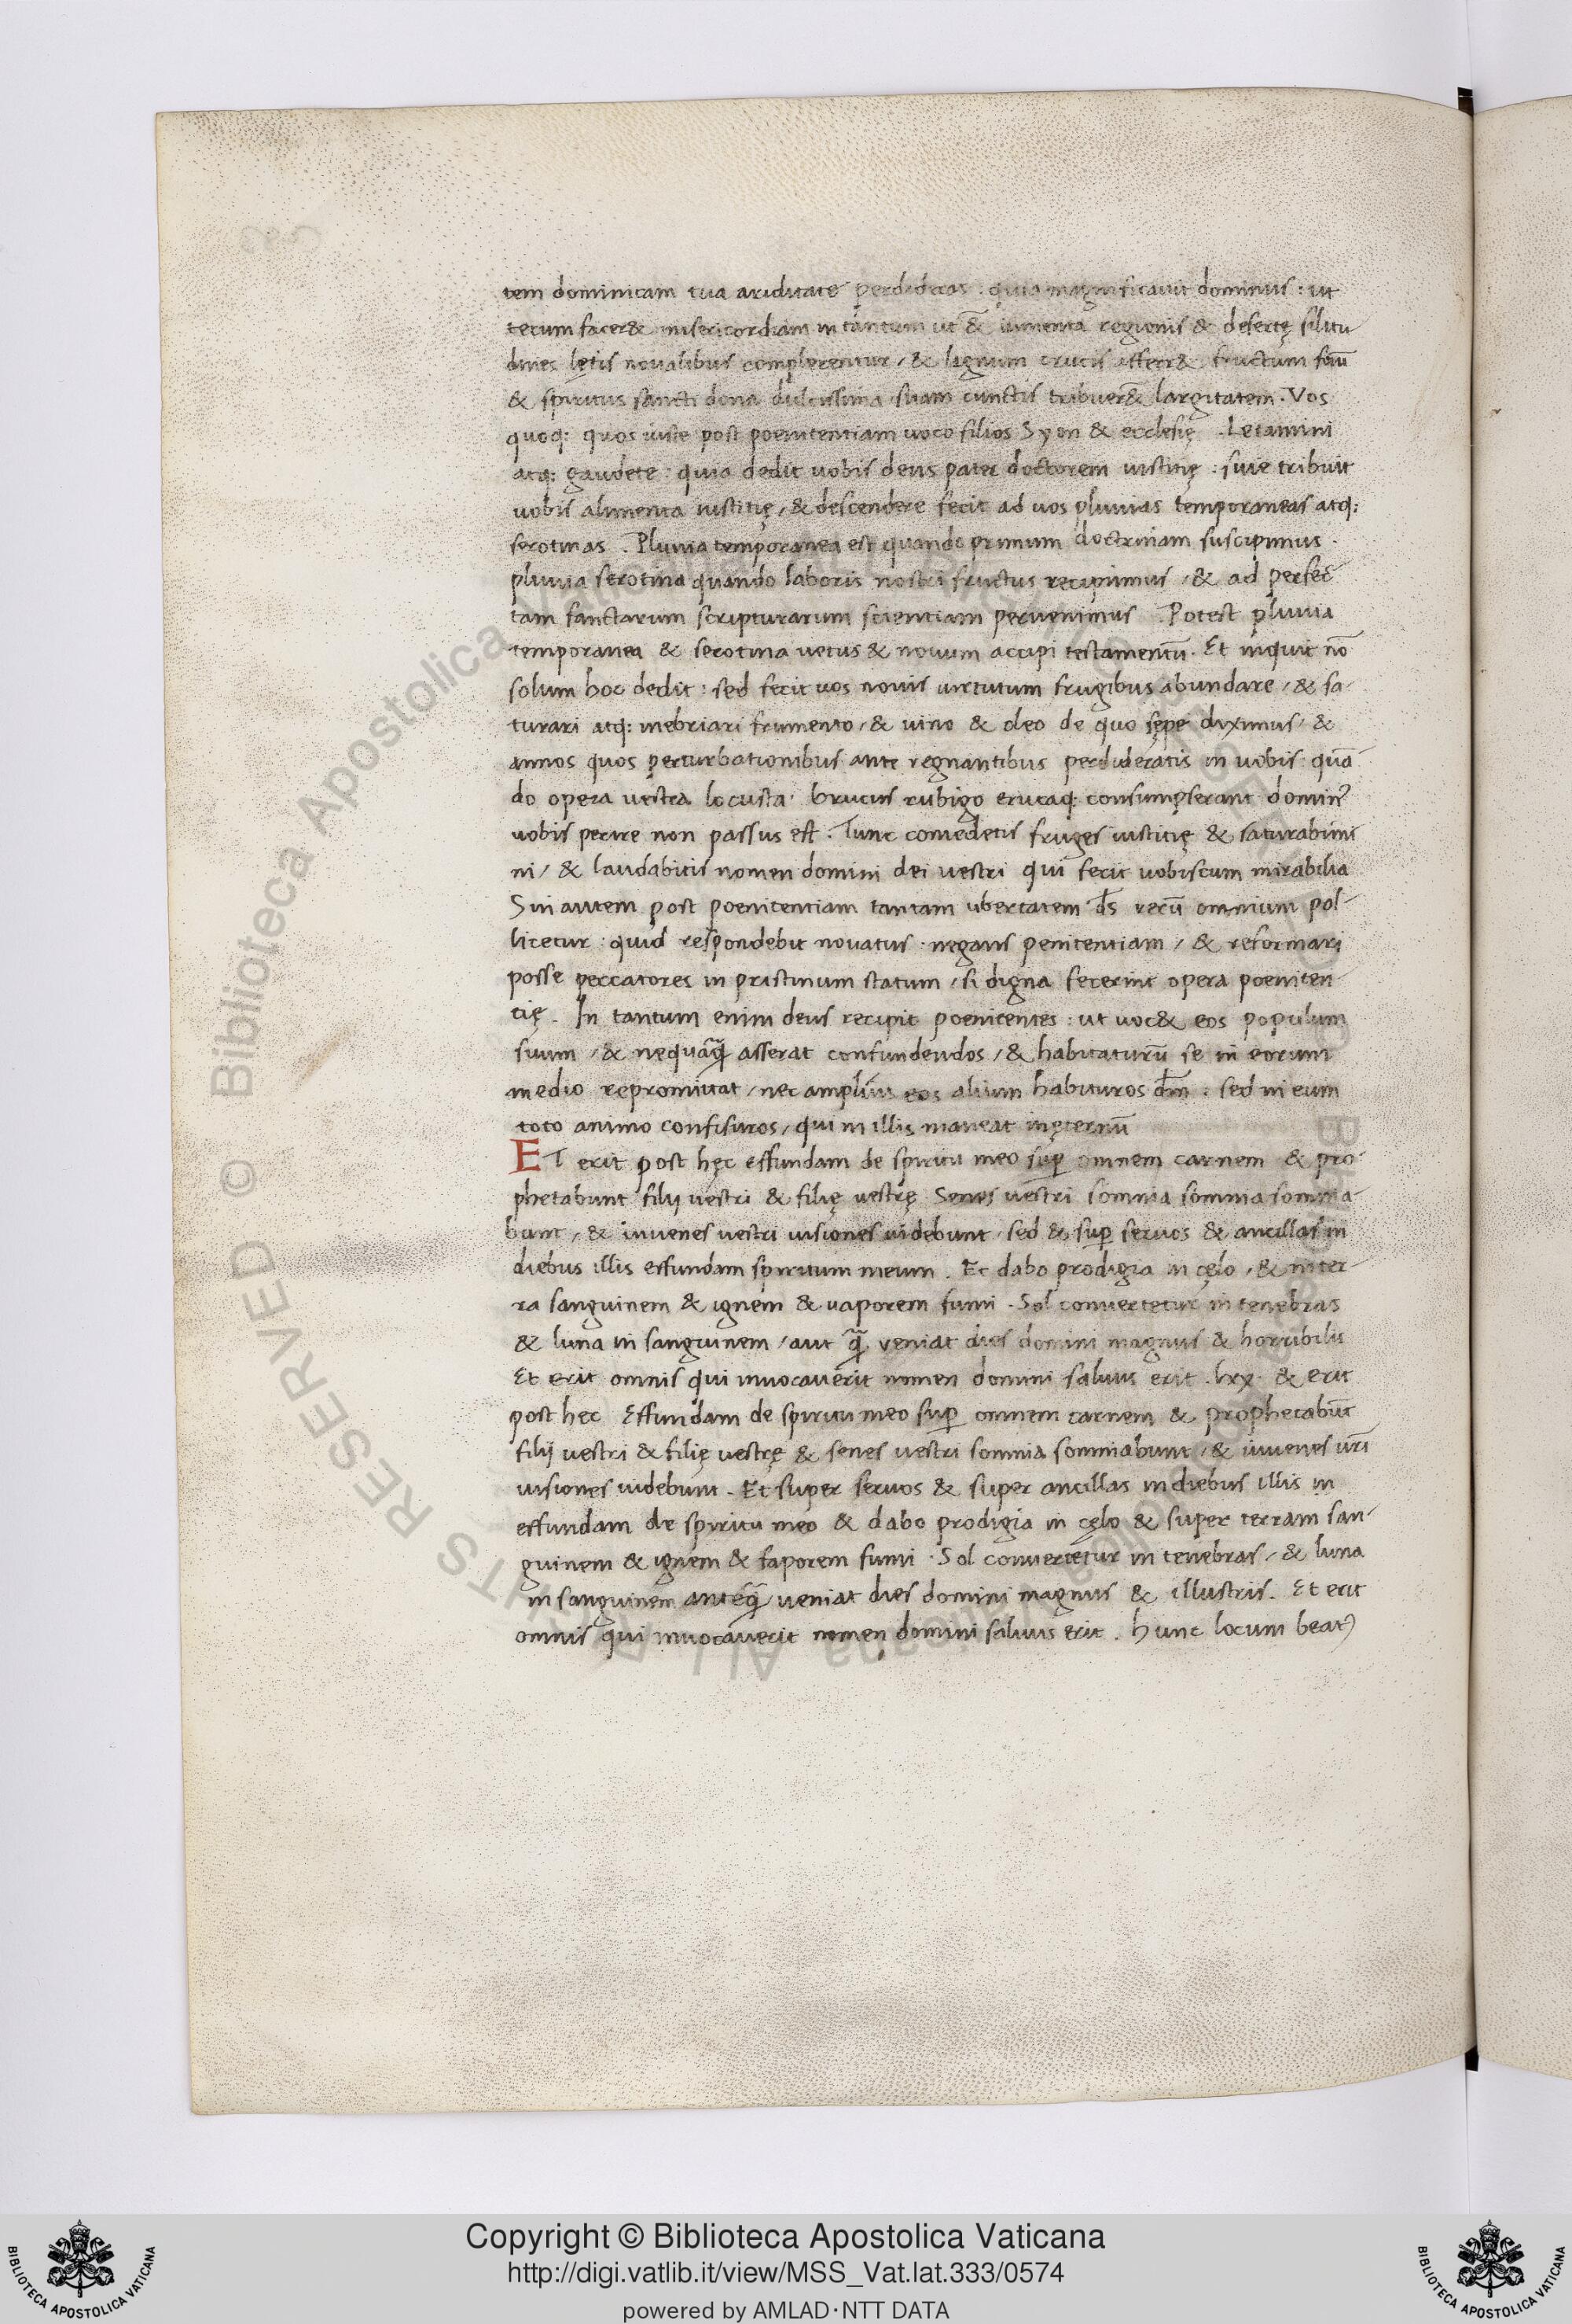 tem dominicam tua ariditate perdideras : quia magnificauit dominus : ut
tecum facer& misericordiam in tantum ut & iumenta regionis & desertę silitu
dines lętis noualibus complerentur / & lignum crucis affer& fructum suū
& spiritus sancti dona dulcissima suam cunctis tribuer& largitatem . Vos
quoq: quos iuste post poenitentiam uoco filios Syon & ecclesię . Letamini
atq: gaudete : quia dedit uobis deus pater doctorem iustitię : siue tribuit
uobis alimenta iustitię / & descendere fecit ad uos pluuias temporaneas atq:
serotinas . Pluuia temporanea est quando primum doctrinam suscipimus .
pluuia serotina quando laboris nostri fructus recipimus / & ad perfec
tam sanctarum scripturarum scientiam peruenimus . Potest pluuia
temporanea & serotina uetus & nouum accipi testamentū . Et inquit nō
solum hoc dedit : sed fecit uos nouis uirtutum frugibus abundare / & sa-
turari atq: inebriari frumento / & uino & oleo de quo sępe diximus / &
annos quos perturbationibus ante regnantibus perdideratis in uobis : quā
do opera uestra locusta brucus rubigo erucaq: consumpserant domin9
uobis perire non passus est . Tunc comedetis fruges iustitię & saturabimi
ni / & laudabitis nomen domini dei uestri qui fecit uobiscum mirabilia
Sin autem post poenitentiam tantam ubertatem ds̄ rerū omnium pol-
licetur : quid respondebit nouatus negans penitentiam / & reformari
posse peccatores in pristinum statum / si digna fecerint opera poeniten
tię . In tantum enim deus recipit poenitentes : ut uoc& eos populum
suum / & nequaq̄ asserat confundendos / & habitaturū se in eorum
medio repromittat / nec amplius eos alium habituros dm̄ : sed in eum
toto animo confisuros / qui in illis maneat inęternū
ET erit post hęc effundam de spiritu meo sup omnem carnem & pro-
phetabunt filij uestri & filię uestrę Senes uestri somnia somnia somnia-
bunt / & iuuenes uestri uisiones uidebunt sed & sup seruos & ancillas in
diebus illis effundam spiritum meum . Et dabo prodigia in cęlo / & inter-
ra sanguinem & ignem & uaporem fumi . Sol conuertetur in tenebras
& luna in sanguinem / ant q̄ veniat dies domini magnus & horribilis
Et erit omnis qui inuocauerit nomen domini saluus erit . lxx . & erit
post hec Effundam de spiritu meo sup omnem carnem & prophetabūt
filij vestri & filię vestrę & senes vestri somnia somniabunt / & iuuenes urī
uisiones uidebunt . Et super seruos & super ancillas in diebus illis in
effundam de spiritu meo & dabo prodigia in cęlo & super terram san-
guinem & ignem & faporem fumi . Sol conuertetur in tenebras / & luna
in sanguinem anteq̄ ueniat dies domini magnus & illustris . Et erit
omnis qui inuocauerit nomen domini saluus erit . hunc locum beat9
Copyright © Biblioteca Apostolica Vaticana
http://digi.vatlib.it/view/MSS_Vat.lat.333/0574
powered by AMLAD·NTT DATA
BIBLIOTECA APOSTOLICA VATICANA
BIBLIOTECA APOSTOLICA VATICANA